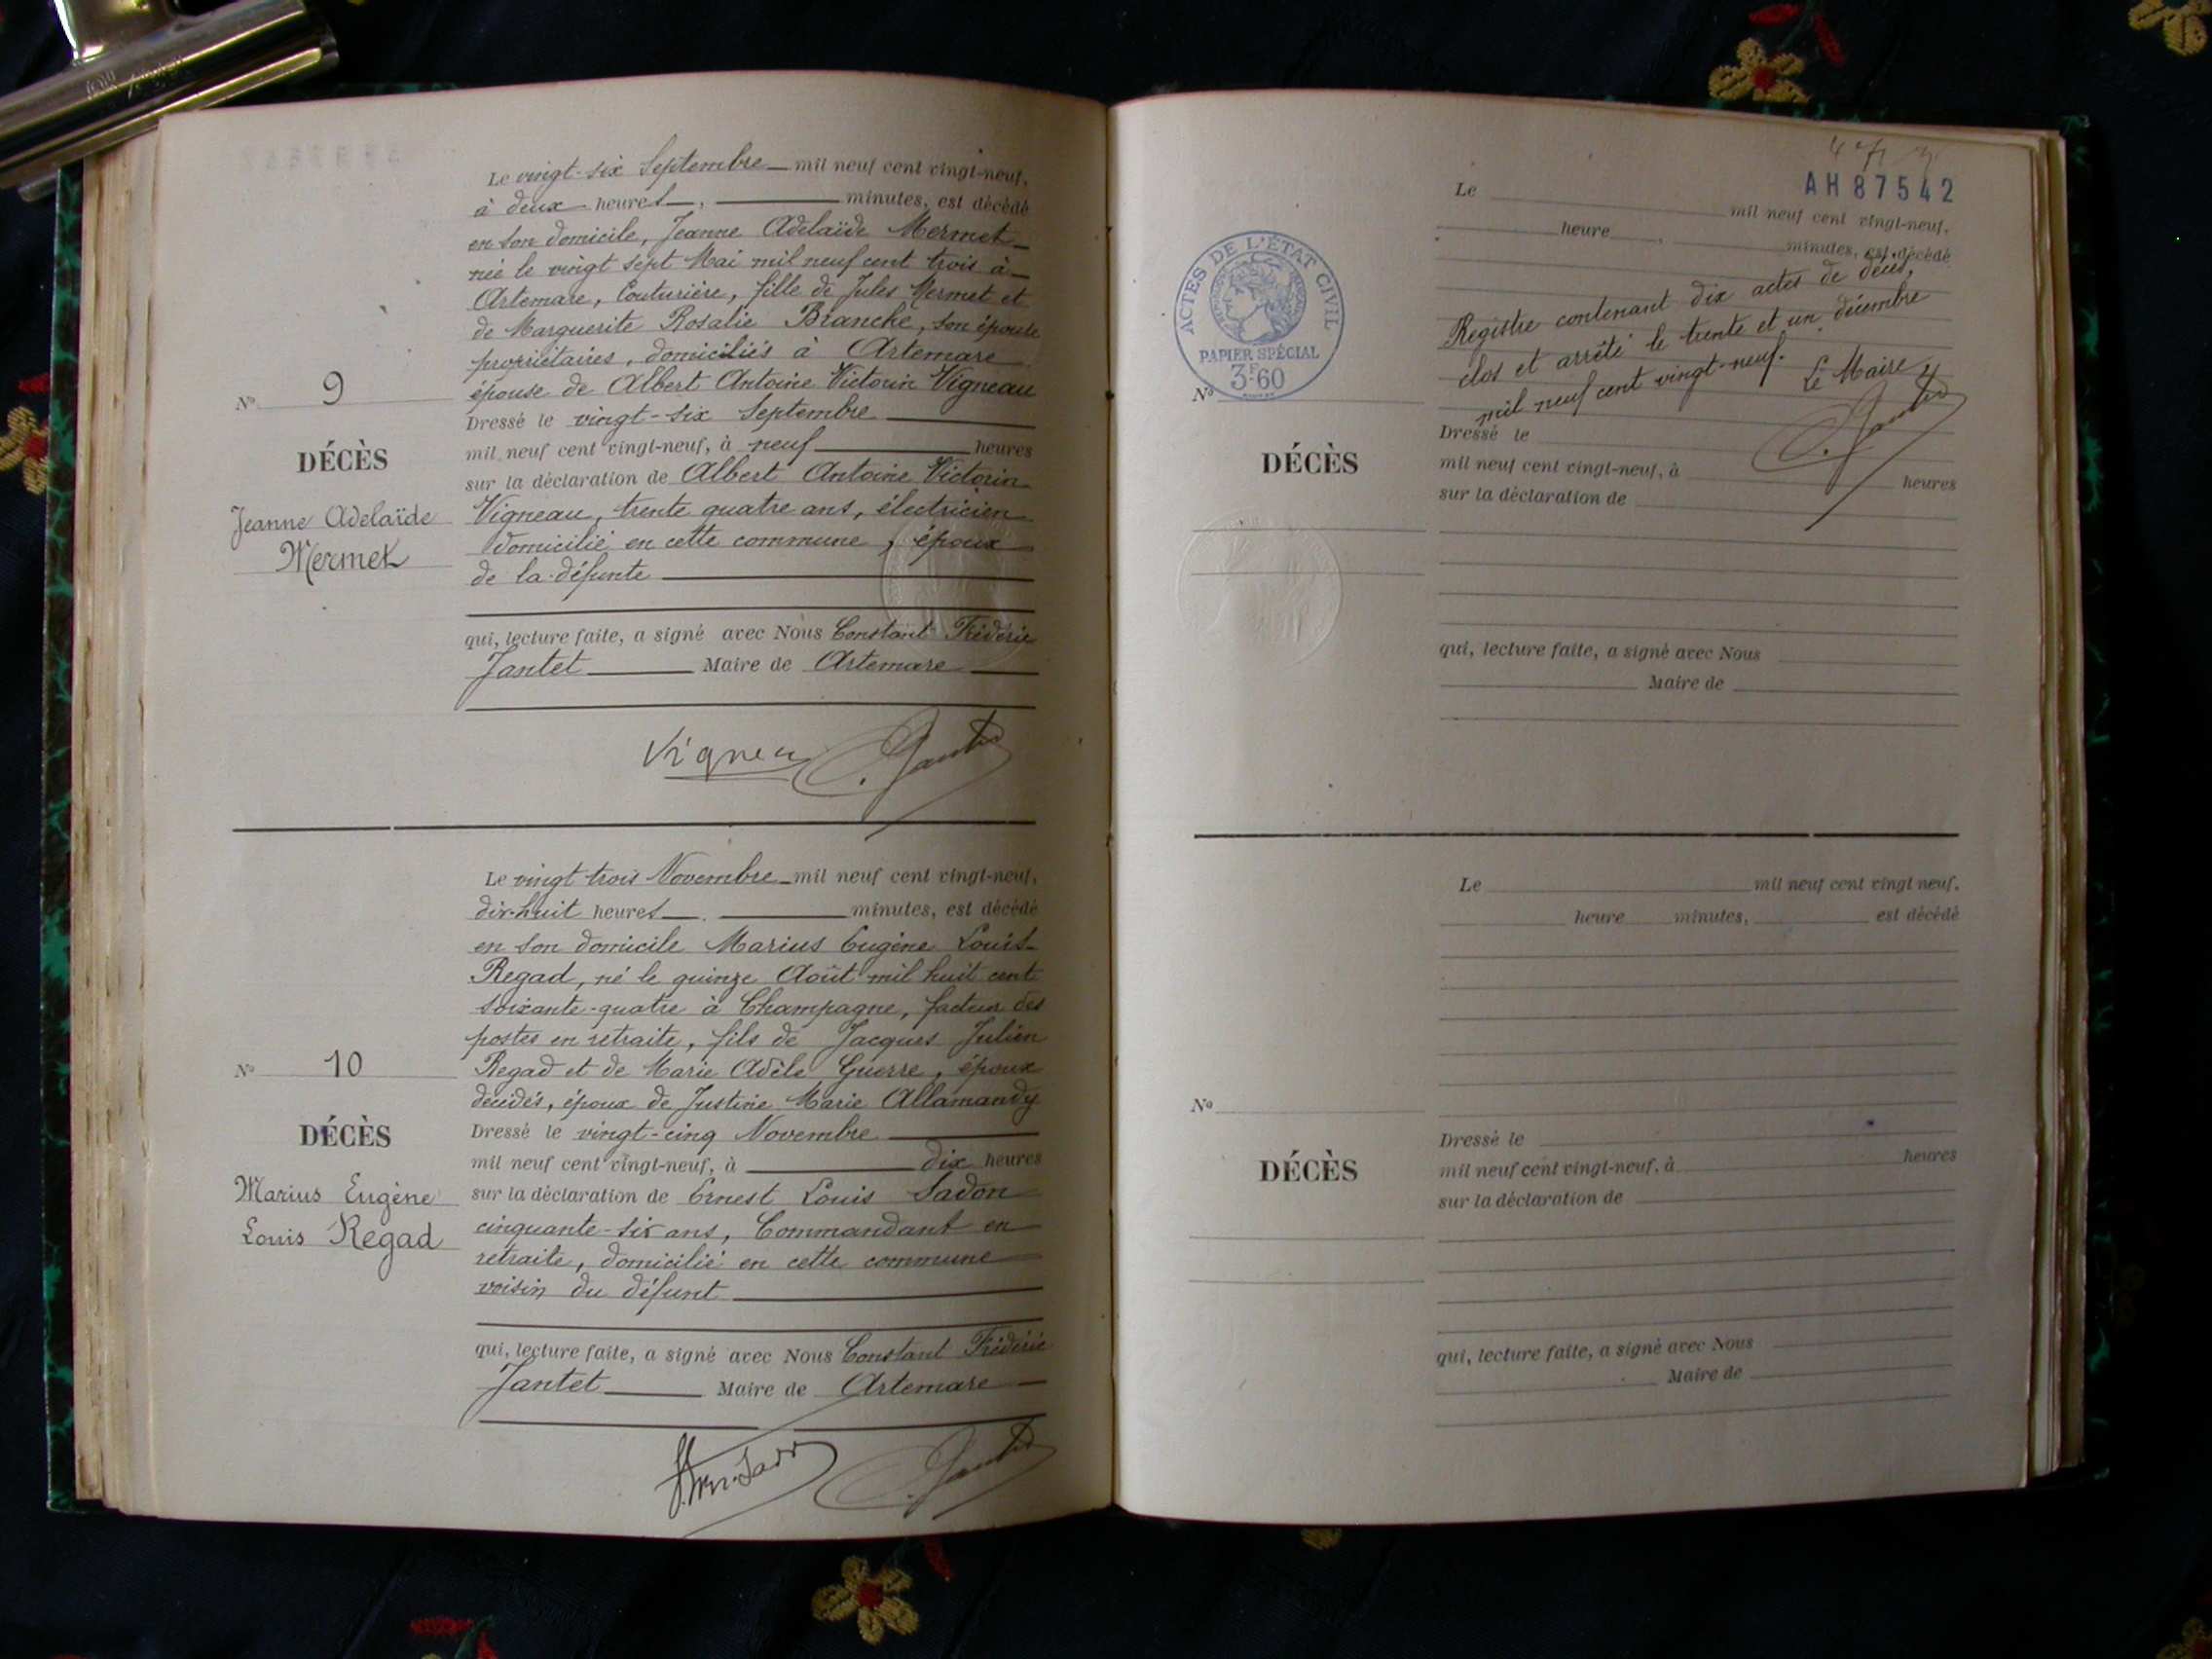 Le vingt-six Septembre mil neuf cent vingt-neuf,
à deux heures, minutes, est décédé
en son domicile, Jeanne Adelaïde Mermet
née le vingt sept Mai mil neuf cent trois à
Artemare, Couturière, fille de Jules Mermet et
de Marguerite Rosalie Branche, son épouse
propriétaires, domiciliés à Artemare
épouse de Albert Antoine Victorin Vigneau
No 9
DÉCÈS
Jeanne Adelaïde
Mermet
Dressé le vingt-six Septembre
mil neuf cent vingt-neuf, à neuf heures
sur la déclaration de Albert Antoine Victorin
Vigneau, trente quatre ans, électricien
domicilié en cette commune, époux
de la défunte
qui, lecture faite, a signé avec Nous Constant Frédéric
Jantet Maire de Artemare
Vigneau Jantet
Le vingt trois Novembre mil neuf cent vingt-neuf,
dix-huit heures, minutes, est décédé
en son domicile Marius Eugène Louis
Regad, né le quinze Août mil huit cent
soixante-quatre à Champagne, facteur des
postes en retraite, fils de Jacques Julien
Regad et de Marie Adèle Guerre, époux
décédés, époux de Justine Marie Allamandy
No 10
DÉCÈS
Marius Eugène
Louis Regad
Dressé le vingt-cinq Novembre
mil neuf cent vingt-neuf, à dix heures
sur la déclaration de Ernest Louis Sadon
cinquante-six ans, Commandant en
retraite, domicilié en cette commune
voisin du défunt
qui, lecture faite, a signé avec Nous Constant Frédéric
Jantet Maire de Artemare
Jantet
AH 87542
Le mil neuf cent vingt-neuf,
heure, minutes, est décédé
Registre contenant dix actes de décès,
clos et arrêté le trente et un décembre
mil neuf cent vingt-neuf. Le Maire
Jantet
ACTES DE L'ÉTAT CIVIL
PAPIER SPÉCIAL
3F60
No
DÉCÈS
Dressé le
mil neuf cent vingt-neuf, à heures
sur la déclaration de
qui, lecture faite, a signé avec Nous
Maire de
Le mil neuf cent vingt neuf,
heure minutes, est décédé
No
DÉCÈS
Dressé le
mil neuf cent vingt-neuf, à heures
sur la déclaration de
qui, lecture faite, a signé avec Nous
Maire de